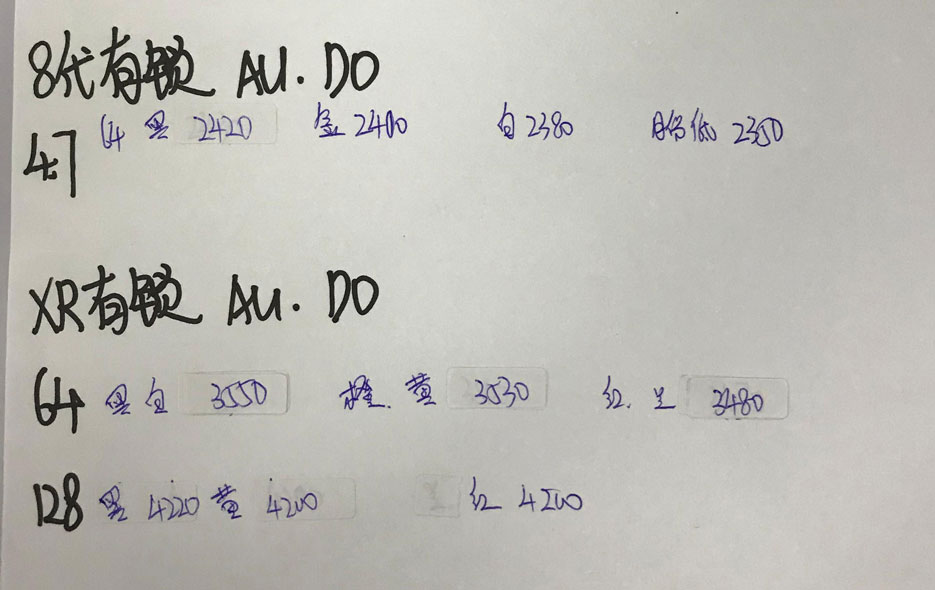 8代有锁 AU.DO
4.7 64 黑 2420 金 2400 白 2380 月份低 2350
XR有锁 AU.DO
64 黑 白 3550 橙. 黄 3530 红. 兰 3480
128 黑 4220 黄 4200 红 4200